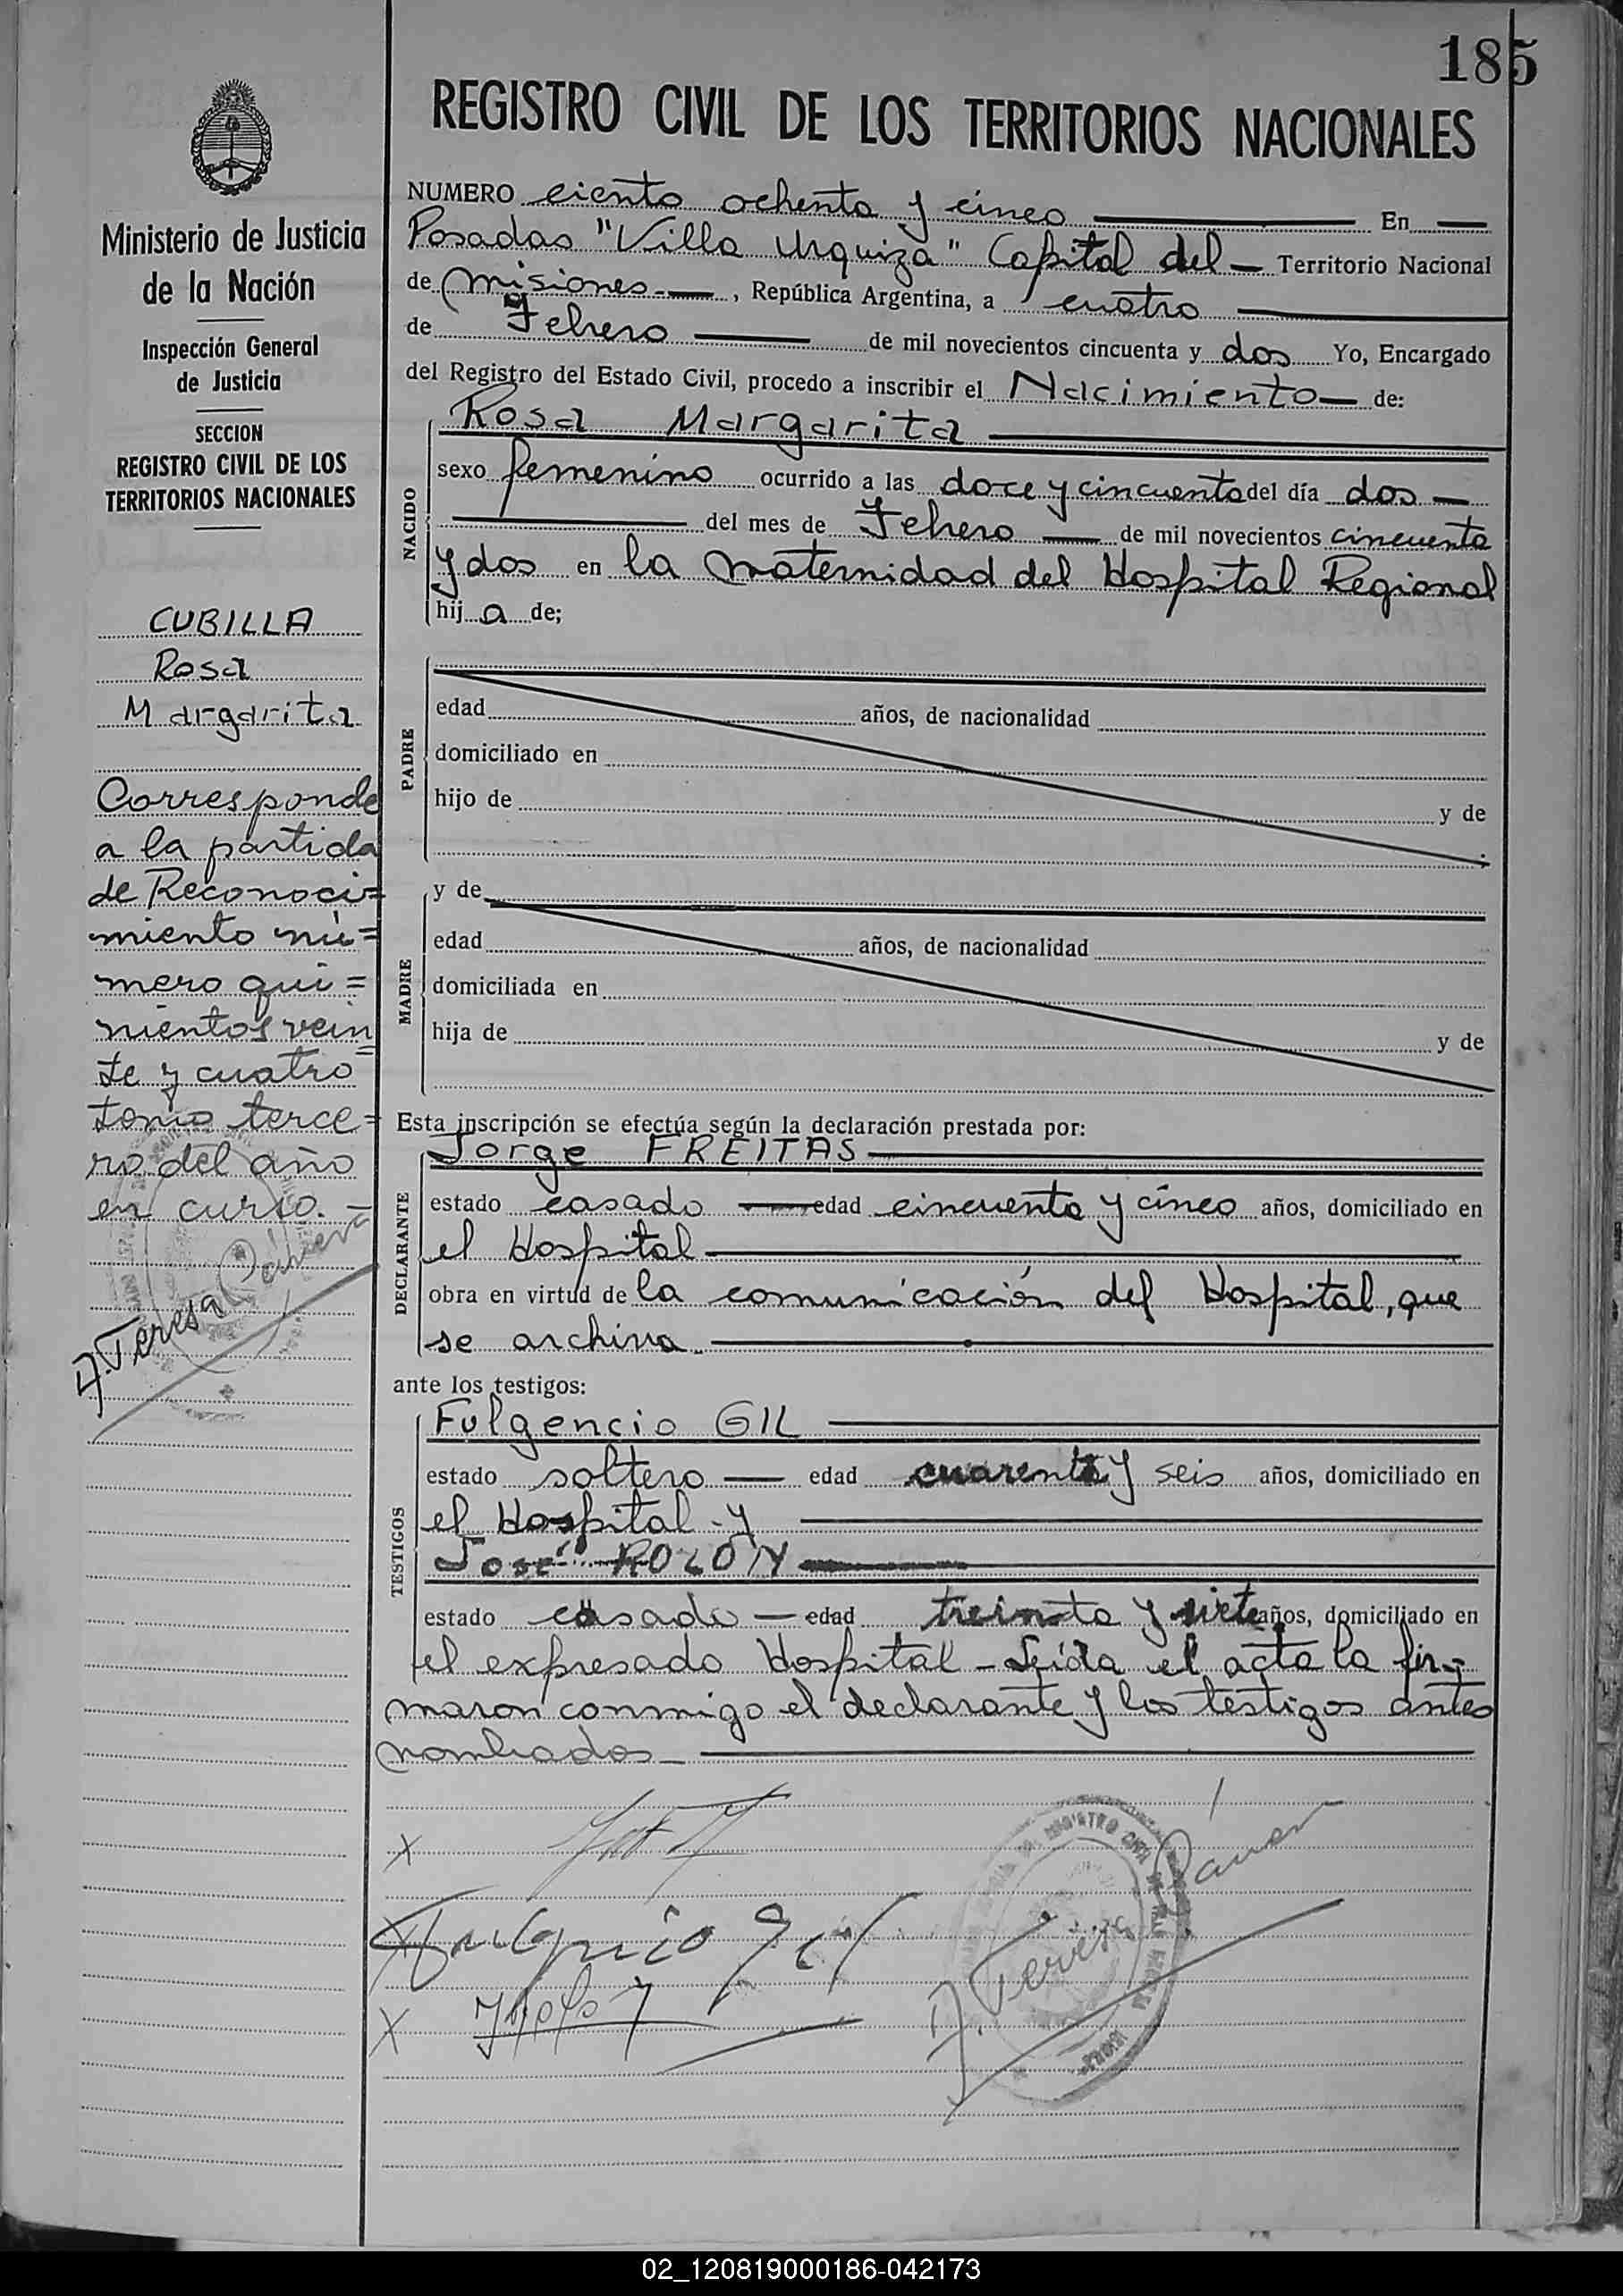 185
REGISTRO CIVIL DE LOS TERRITORIOS NACIONALES
Ministerio de Justicia
de la Nación
Inspección General
de Justicia
SECCION
REGISTRO CIVIL DE LOS
TERRITORIOS NACIONALES
CUBILLA
Rosa
Margarita
Corresponde
a la partida
de Reconoci=
miento nú=
mero qui=
nientos vein
te y cuatro=
tomo terce=
ro del año
en curso.-
A. Teresa
NUMERO ciento ochenta y cinco En
Posadas "Villa Urquiza" Capital del Territorio Nacional
de Misiones.-, República Argentina, a cuatro
de Febrero de mil novecientos cincuenta y dos Yo, Encargado
del Registro del Estado Civil, procedo a inscribir el Nacimiento de:
NACIDO
Rosa Margarita
sexo femenino ocurrido a las doce y cincuenta del día dos
del mes de Febrero de mil novecientos cincuenta
y dos en la maternidad del Hospital Regional
hij a de;
PADRE
edad años, de nacionalidad
domiciliado en
hijo de y de
;
MADRE
y de
edad años, de nacionalidad
domiciliada en
hija de y de
Esta inscripción se efectúa según la declaración prestada por:
DECLARANTE
Jorge FREITAS
estado casado edad cincuenta y cinco años, domiciliado en
el Hospital
obra en virtud de la comunicación del Hospital, que
se archiva.
ante los testigos:
TESTIGOS
Fulgencio GIL
estado soltero edad cuarenta y seis años, domiciliado en
el Hospital - y
José ROLÓN
estado casado edad treinta y siete años, domiciliado en
el expresado Hospital - Leída el acta la fir-
maron conmigo el declarante y los testigos antes
nombrados-
X
Fulgencio Gil
X
A. Teresa
02_120819000186-042173